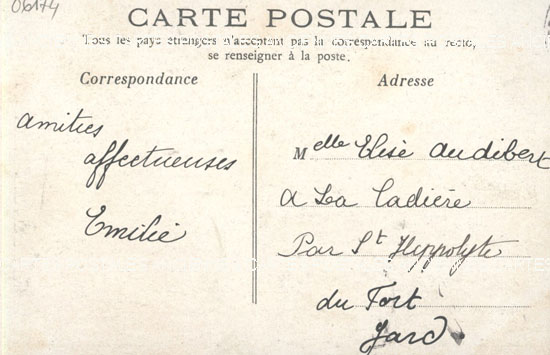 06174
CARTE POSTALE
Tous les pays étrangers n'acceptent pas la correspondance au recto,
se renseigner à la poste.
Correspondance
Adresse
amitiés
affectueuses
Emilie
Melle Elise Audibert
a La Cadière
Par St Hippolyte
du Fort
Gard